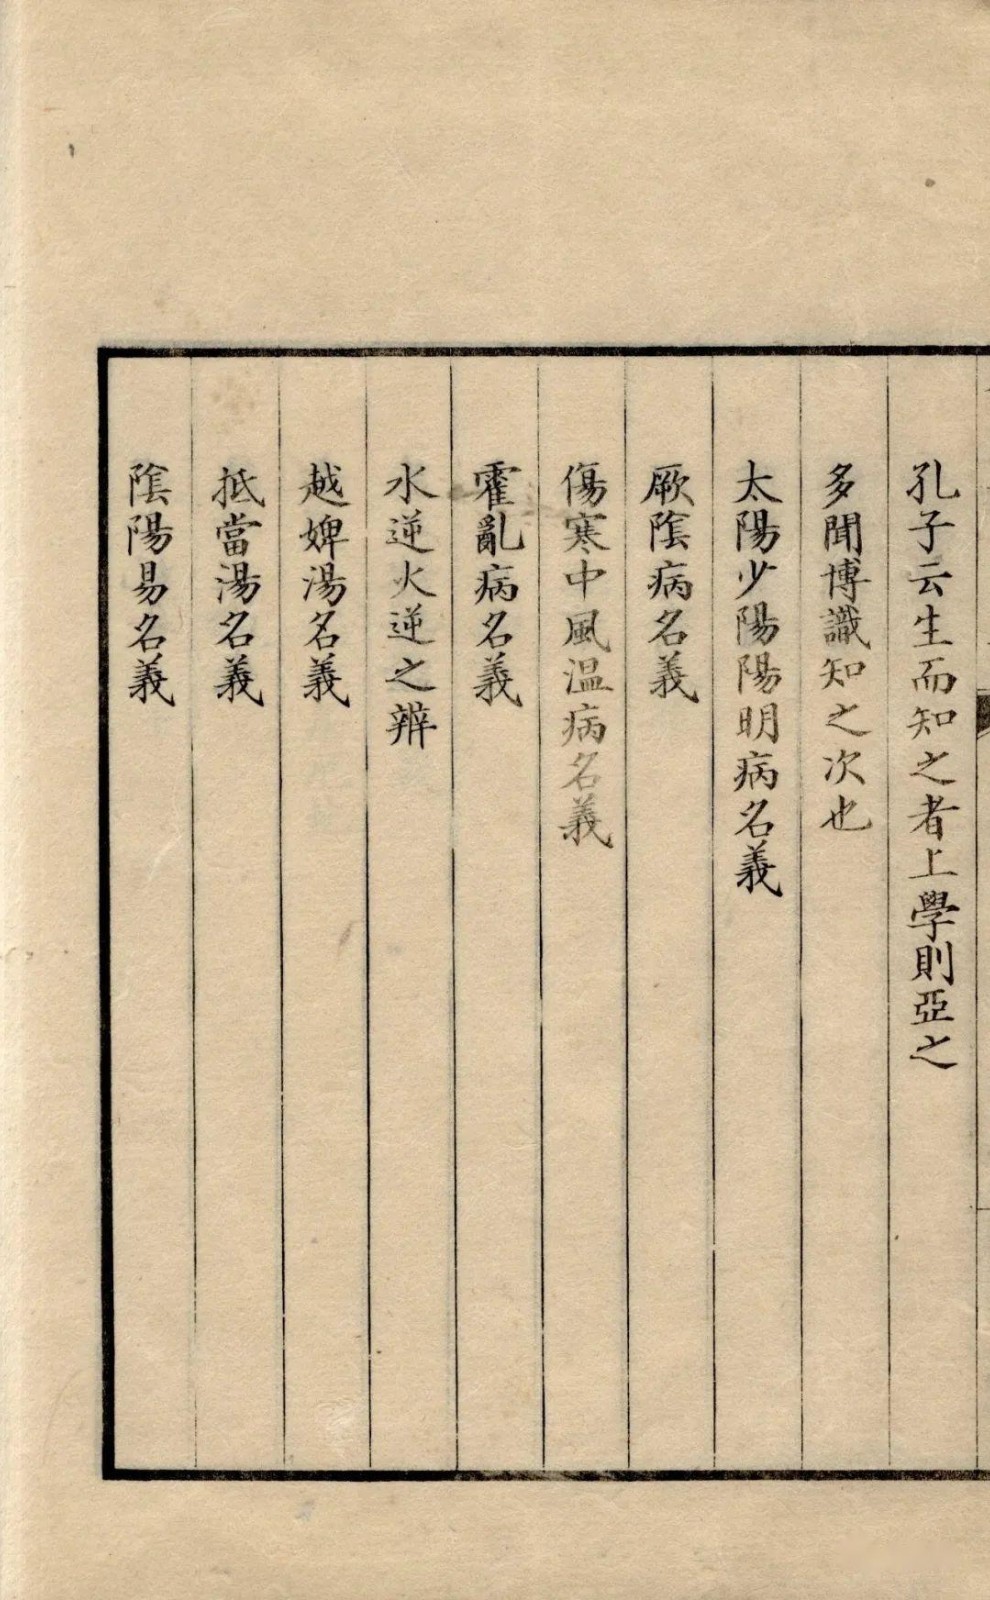 孔子云生而知之者上學則亞之
多聞博識知之次也
太陽少陽陽明病名義
厥陰病名義
傷寒中風溫病名義
霍亂病名義
水逆火逆之辨
越婢湯名義
抵當湯名義
陰陽易名義